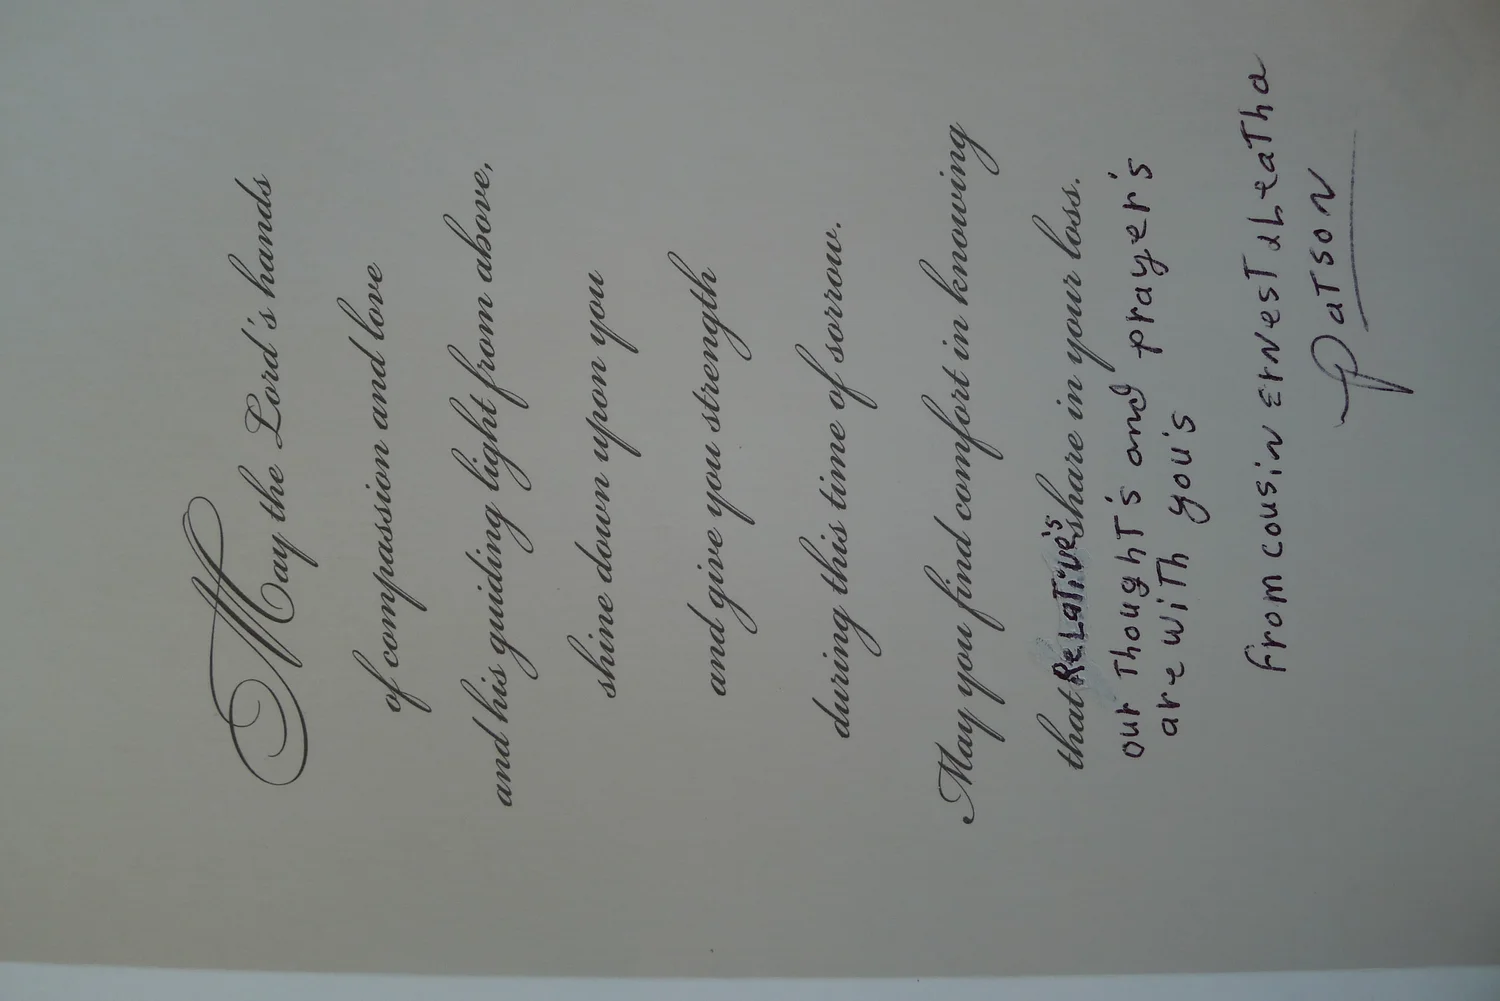 May the Lord's hands
of compassion and love
and his guiding light from above,
shine down upon you
and give you strength
during this time of sorrow.
May you find comfort in knowing
that ReLaTive's share in your loss.
our ThoughT's and prayer's
are wiTh you's
from cousin ErnesT & LeaTha
PaTson